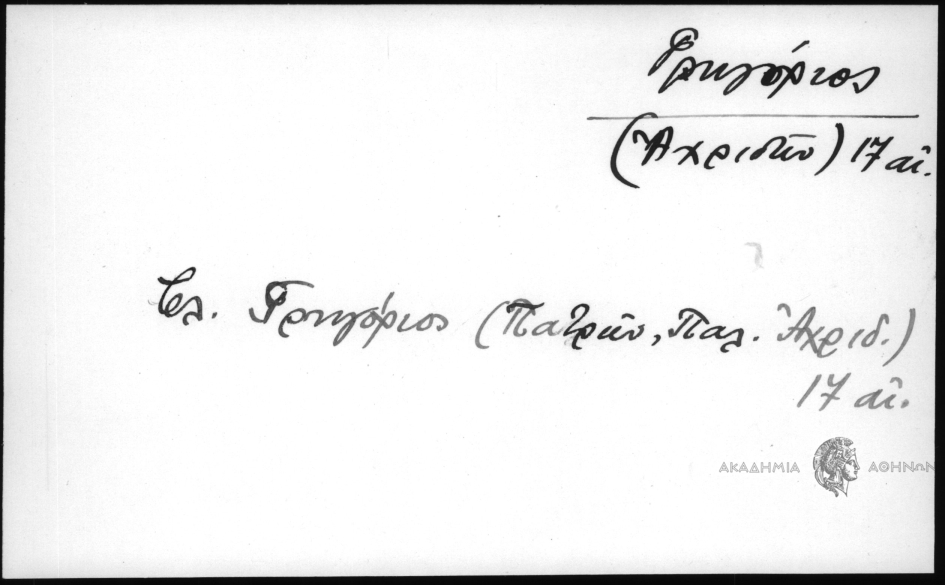 Γρηγόριος
(Ἀχριδῶν) 17 αἰ.
Βλ. Γρηγόριος (Πατρῶν, Παλ. Ἀχριδ.)
17 αἰ.
ΑΚΑΔΗΜΙΑ ΑΘΗΝΩΝ